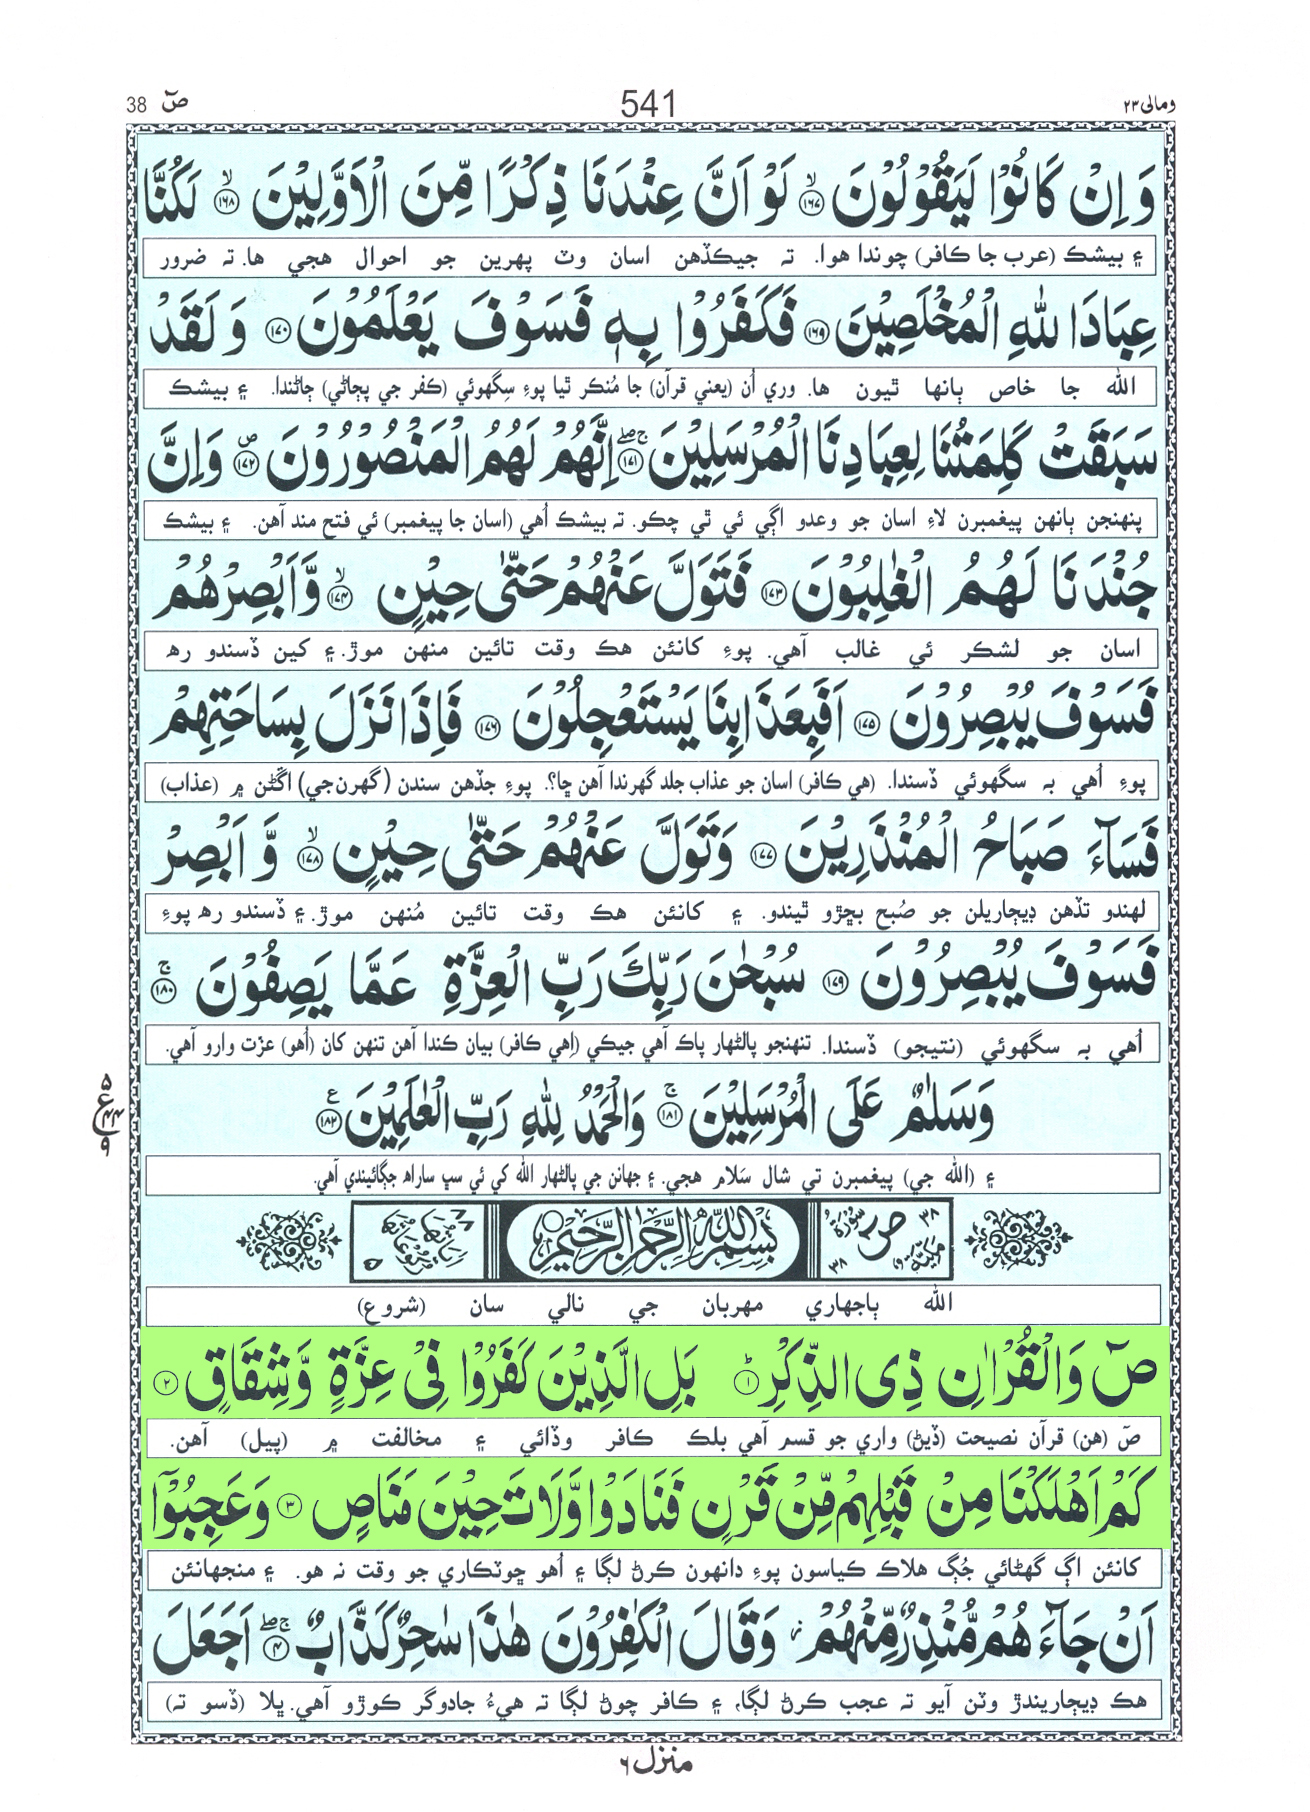 38 صٓ 541 ومالی ٢٣
وَ اِنْ كَانُوْا لَيَقُوْلُوْنَ ﴿١٦٧﴾ۙ لَوْ اَنَّ عِنْدَنَا ذِكْرًا مِّنَ الْاَوَّلِيْنَ ﴿١٦٨﴾ۙ لَكُنَّا
۽ بيشڪ (عرب جا ڪافر) چوندا هوا. ته جيڪڏهن اسان وٽ پهرين جو احوال هجي ها. ته ضرور
عِبَادَ اللّٰهِ الْمُخْلَصِيْنَ ﴿١٦٩﴾ فَكَفَرُوْا بِهٖ فَسَوْفَ يَعْلَمُوْنَ ﴿١٧٠﴾ وَ لَقَدْ
الله جا خاص ٻانها ٿيون ها. وري اُن (يعني قرآن) جا مُنڪر ٿيا پوءِ سِگهوئي (ڪفر جي پڄاڻي) ڄاڻندا. ۽ بيشڪ
سَبَقَتْ كَلِمَتُنَا لِعِبَادِنَا الْمُرْسَلِيْنَ ﴿١٧١﴾ۚۖ اِنَّهُمْ لَهُمُ الْمَنْصُوْرُوْنَ ﴿١٧٢﴾۪ وَاِنَّ
پنهنجن ٻانهن پيغمبرن لاءِ اسان جو وعدو اڳي ئي ٿي چڪو. ته بيشڪ اُهي (اسان جا پيغمبر) ئي فتح مند آهن. ۽ بيشڪ
جُنْدَنَا لَهُمُ الْغٰلِبُوْنَ ﴿١٧٣﴾ فَتَوَلَّ عَنْهُمْ حَتّٰى حِيْنٍ ﴿١٧٤﴾ۙ وَّاَبْصِرْهُمْ
اسان جو لشڪر ئي غالب آهي. پوءِ کانئن هڪ وقت تائين منهن موڙ. ۽ کين ڏسندو ره
فَسَوْفَ يُبْصِرُوْنَ ﴿١٧٥﴾ اَفَبِعَذَابِنَا يَسْتَعْجِلُوْنَ ﴿١٧٦﴾ فَاِذَا نَزَلَ بِسَاحَتِهِمْ
پوءِ اُهي به سگهوئي ڏسندا. (هي ڪافر) اسان جو عذاب جلد گهرندا آهن ڇا؟. پوءِ جڏهن سندن (گهرن جي) اڱڻن ۾ (عذاب)
فَسَآءَ صَبَاحُ الْمُنْذَرِيْنَ ﴿١٧٧﴾ وَتَوَلَّ عَنْهُمْ حَتّٰى حِيْنٍ ﴿١٧٨﴾ۙ وَّ اَبْصِرْ
لهندو تڏهن ڊيڄاريلن جو صُبح بڇڙو ٿيندو. ۽ کانئن هڪ وقت تائين مُنهن موڙ. ۽ ڏسندو ره پوءِ
فَسَوْفَ يُبْصِرُوْنَ ﴿١٧٩﴾ سُبْحٰنَ رَبِّكَ رَبِّ الْعِزَّةِ عَمَّا يَصِفُوْنَ ﴿١٨٠﴾ۚ
اُهي به سگهوئي (نتيجو) ڏسندا. تنهنجو پالڻهار پاڪ آهي جيڪي (اِهي ڪافر) بيان ڪندا آهن تنهن کان (اُهو) عزت وارو آهي.
وَسَلٰمٌ عَلَى الْمُرْسَلِيْنَ ﴿١٨١﴾ۚ وَالْحَمْدُ لِلّٰهِ رَبِّ الْعٰلَمِيْنَ ﴿١٨٢﴾ع
۽ (الله جي) پيغمبرن تي شال سَلام هجي. ۽ جهانن جي پالڻهار الله کي ئي سڀ ساراهه جڳائيندي آهي.
٣٨ سُوْرَةُ صٓ مَكِّيَّةٌ ٣٨ بِسْمِ اللّٰهِ الرَّحْمٰنِ الرَّحِيْمِ اٰيَاتُهَا ٨٨ رُكُوْعَاتُهَا ٥
الله ٻاجهاري مهربان جي نالي سان (شروع)
صٓ وَالْقُرْاٰنِ ذِى الذِّكْرِ ﴿١﴾ؕ بَلِ الَّذِيْنَ كَفَرُوْا فِىْ عِزَّةٍ وَّشِقَاقٍ ﴿٢﴾
صٓ (هن) قرآن نصيحت (ڏيڻ) واري جو قسم آهي بلڪ ڪافر وڏائي ۽ مخالفت ۾ (پيل) آهن.
كَمْ اَهْلَكْنَا مِنْ قَبْلِهِمْ مِّنْ قَرْنٍ فَنَادَوْا وَّلَاتَ حِيْنَ مَنَاصٍ ﴿٣﴾ وَعَجِبُوْۤا
کانئن اڳ گهڻائي جُڳ هلاڪ ڪياسون پوءِ دانهون ڪرڻ لڳا ۽ اُهو ڇوٽڪاري جو وقت نه هو. ۽ منجهانئن
اَنْ جَآءَ هُمْ مُّنْذِرٌ مِّنْهُمْ وَقَالَ الْكٰفِرُوْنَ هٰذَا سٰحِرٌ كَذَّابٌ ﴿٤﴾ۚۖ اَجَعَلَ
هڪ ڊيڄاريندڙ وٽن آيو ته عجب ڪرڻ لڳا، ۽ ڪافر چوڻ لڳا ته هيءُ جادوگر ڪوڙو آهي. ڀلا (ڏسو ته)
منزل ٦